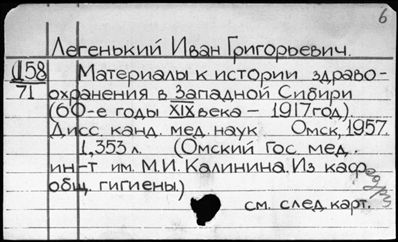 6
Легенький Иван Григорьевич.
Д58 Материалы к истории здраво-
71 охранения в Западной Сибири
(60-е годы XIX века – 1917 год).
Дисс. канд. мед. наук Омск, 1957.
1, 353 л. (Омский Гос. мед.
ин-т им. М.И. Калинина. Из каф.
общ. гигиены.)
см. след. карт.